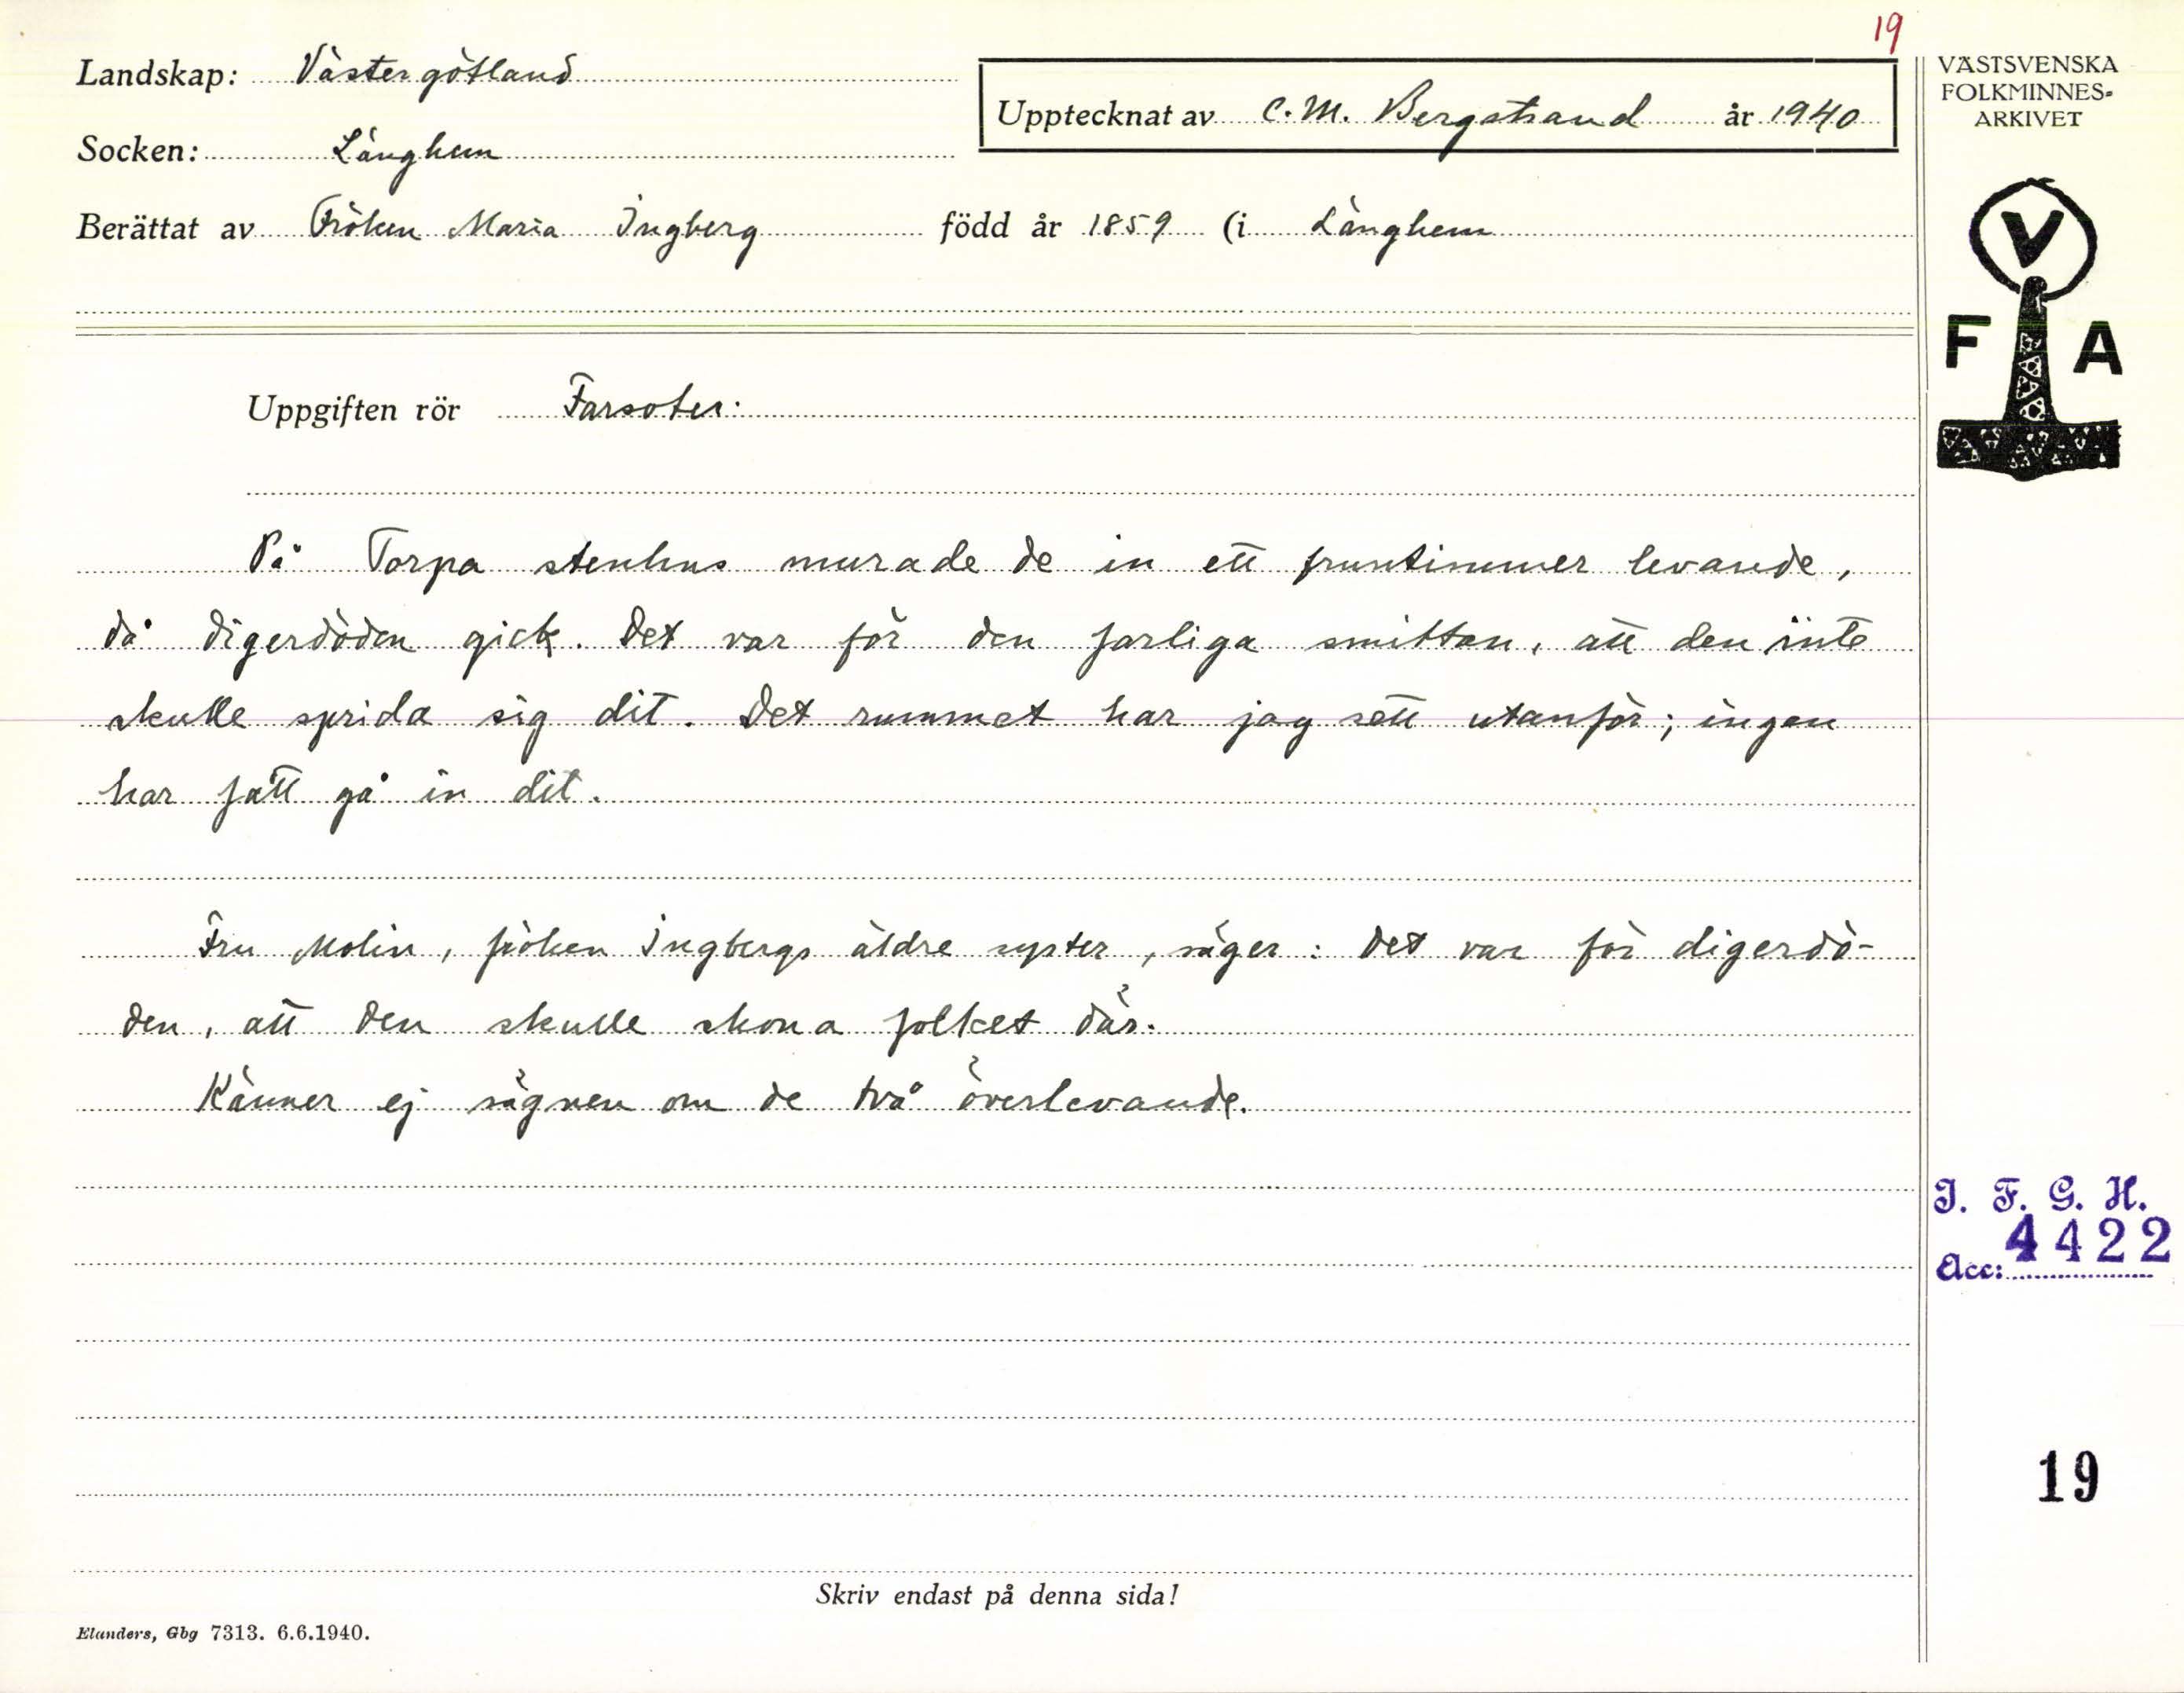 19
Landskap: Västergötland
Upptecknat av C. M. Bergstrand år 1940
Socken: Länghem
Berättat av Fröken Maria Ingberg född år 1859 (i Länghem
VÄSTSVENSKA
FOLKMINNES-
ARKIVET
V
F A
Uppgiften rör Farsoter:
På Torpa stenhus murade de in ett fruntimmer levande,
då digerdöden gick. Det var för den farliga smittan, att den inte
skulle sprida sig dit. Det rummet har jag sett utanför; ingen
har fått gå in dit.
Fru Molin, fröken Ingbergs äldre syster, säger: Det var för digerdö-
den, att den skulle skona folket där.
Känner ej sägnen om de två överlevande.
I. F. G. H.
Acc: 4422
19
Skriv endast på denna sida!
Elanders, Gbg 7313. 6.6.1940.